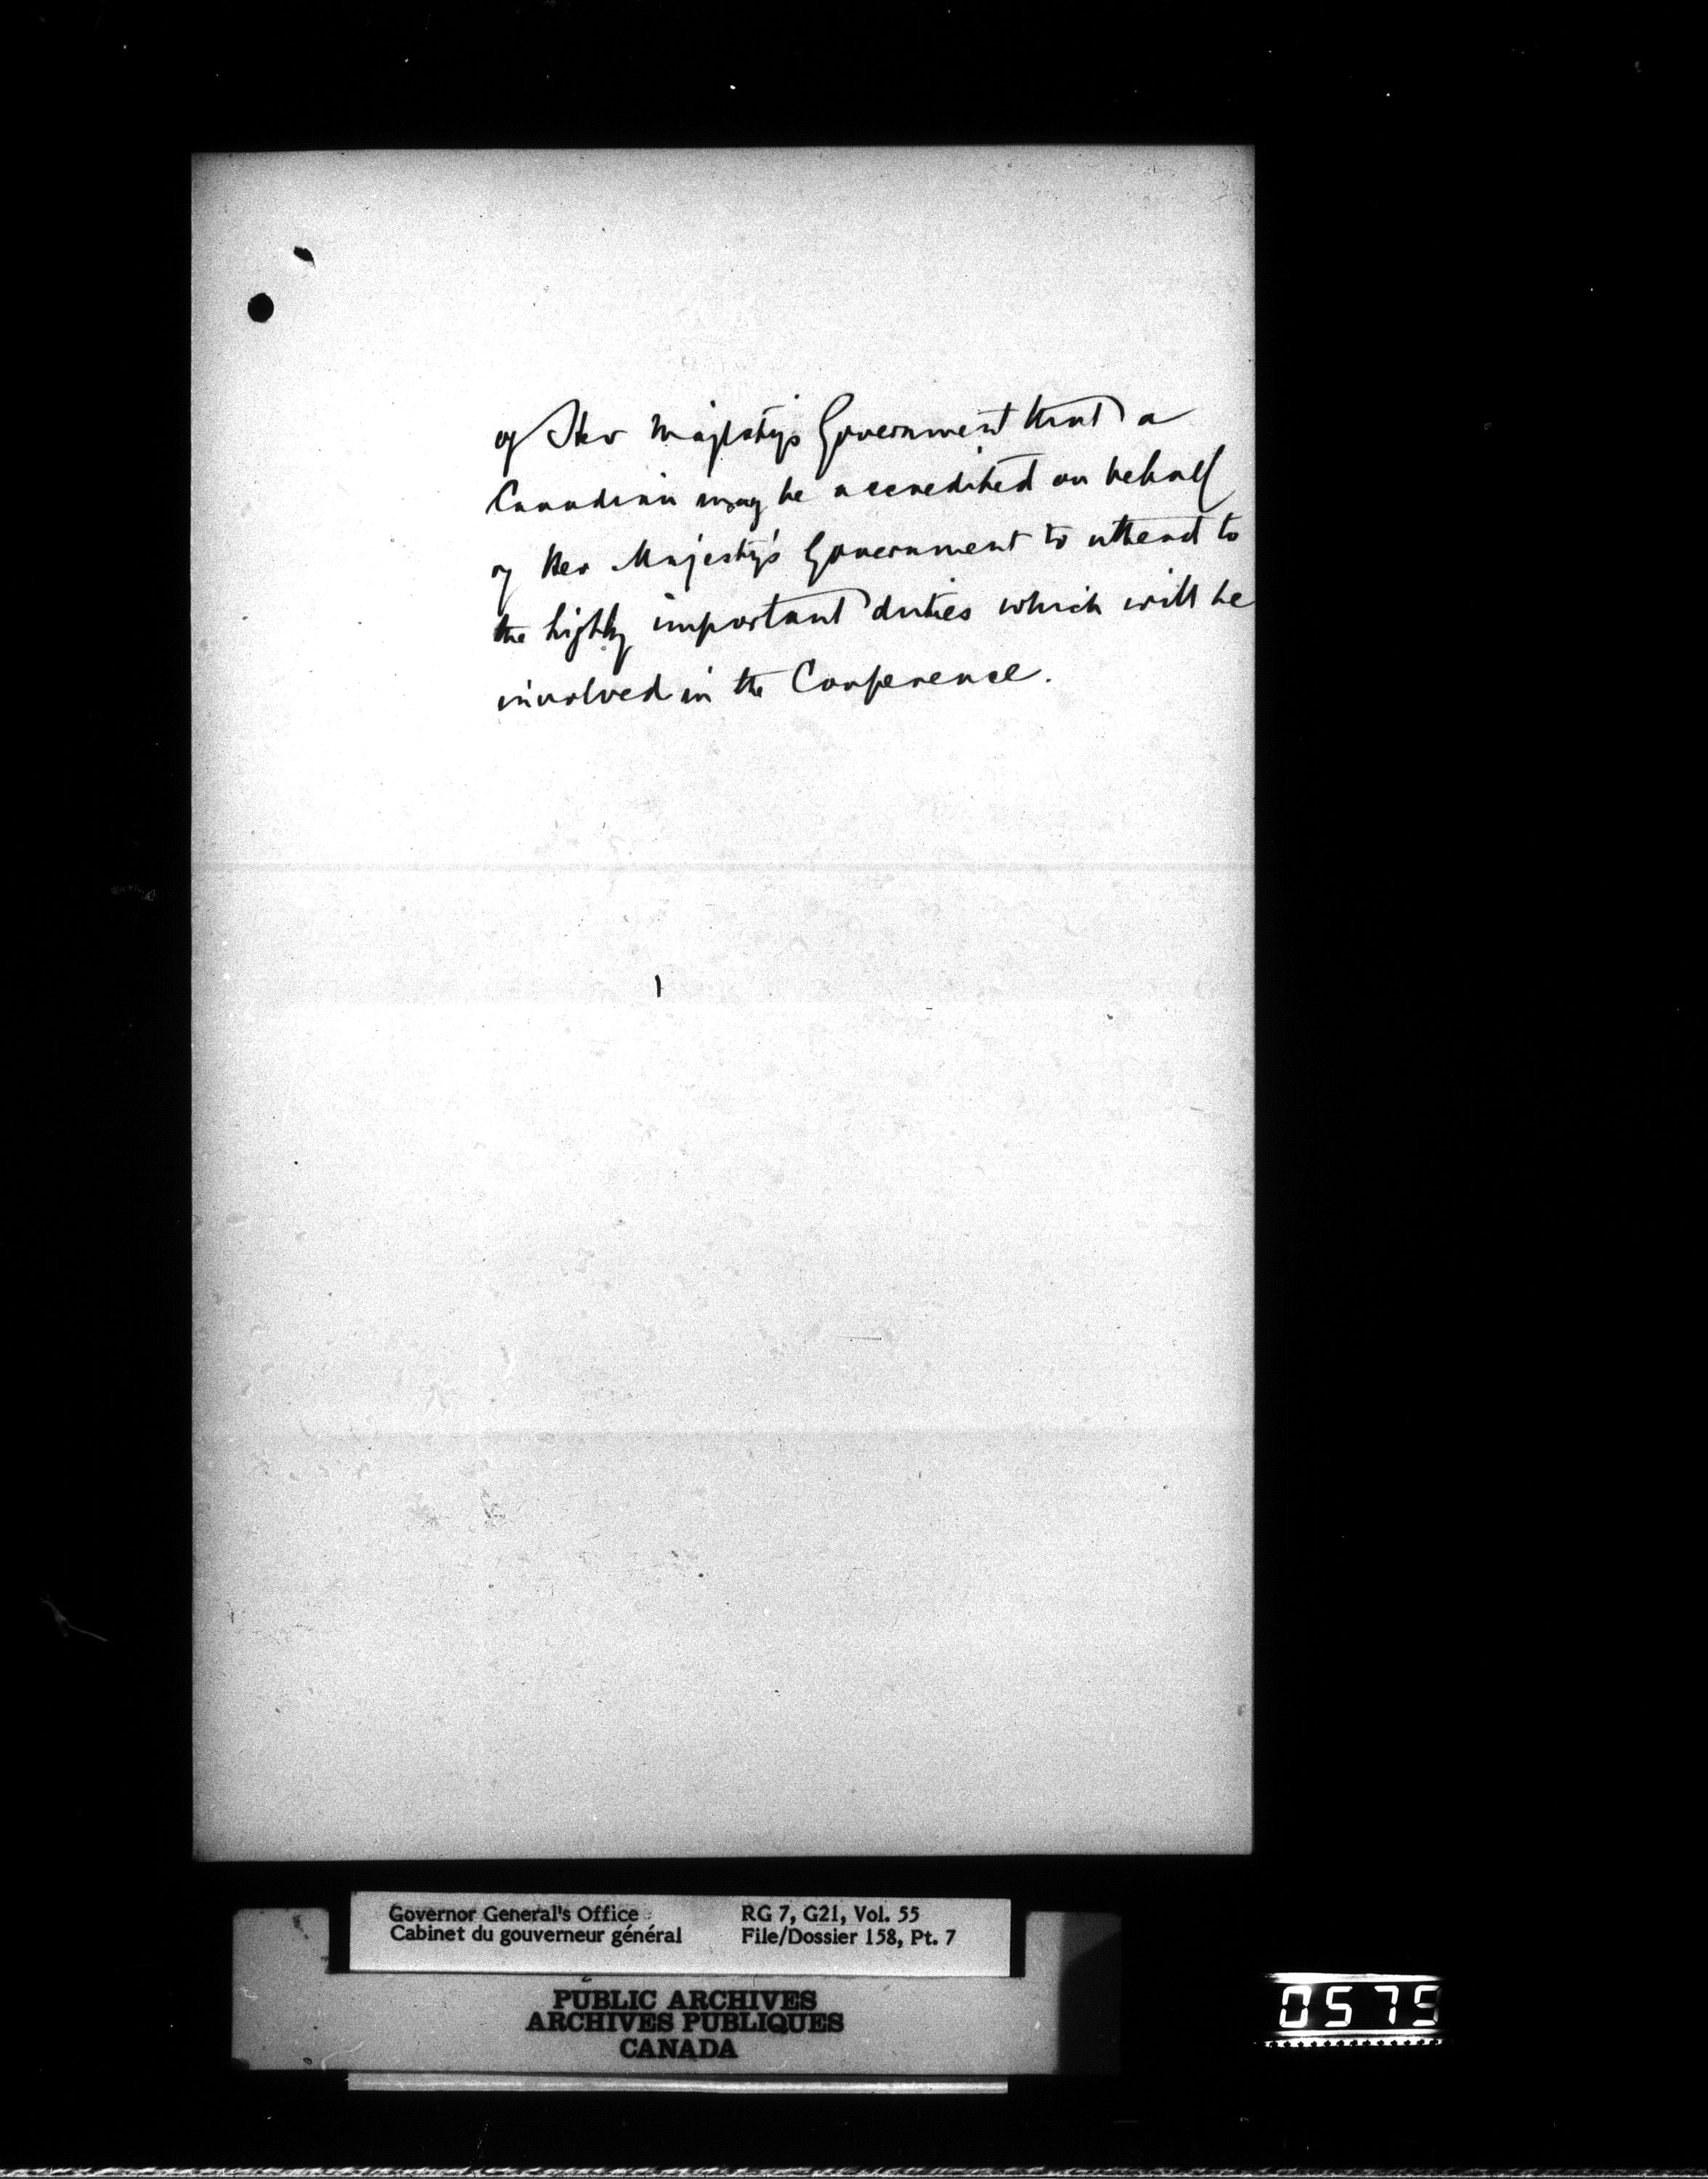 of Her Majesty's Government that a
Canadian may be accredited on behalf
of Her Majesty's Government to attend to
the highly important duties which will be
involved in the Conference.
Governor General's Office RG 7, G21, Vol. 55
Cabinet du gouverneur général File/Dossier 158, Pt. 7
PUBLIC ARCHIVES
ARCHIVES PUBLIQUES
CANADA
0575